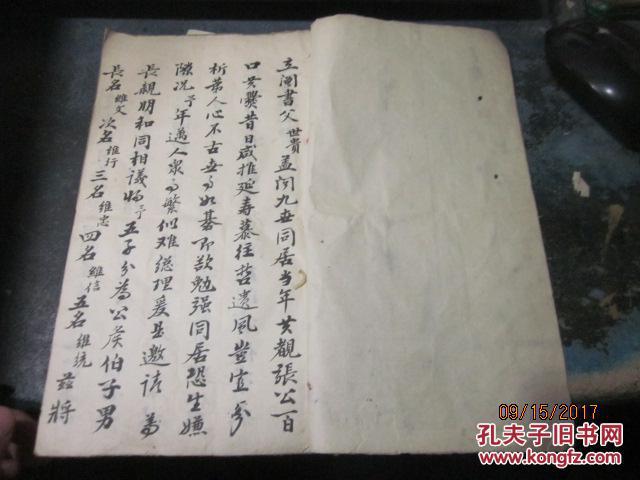 立阄書父世貴盖闻九世同居当年共觀張公百
口共爨昔日咸推延寿慕往哲遗风豈宜分
析第人心不古世事如碁即欲勉强同居恐生嫌
隙况予年邁人衆事繁似难總理爰且邀请
長親明和同相議将予五子分為公侯伯子男
長名維文次名維行三名維忠四名維信五名維统兹將
09/15/2017
孔夫子旧书网
www.kongfz.com